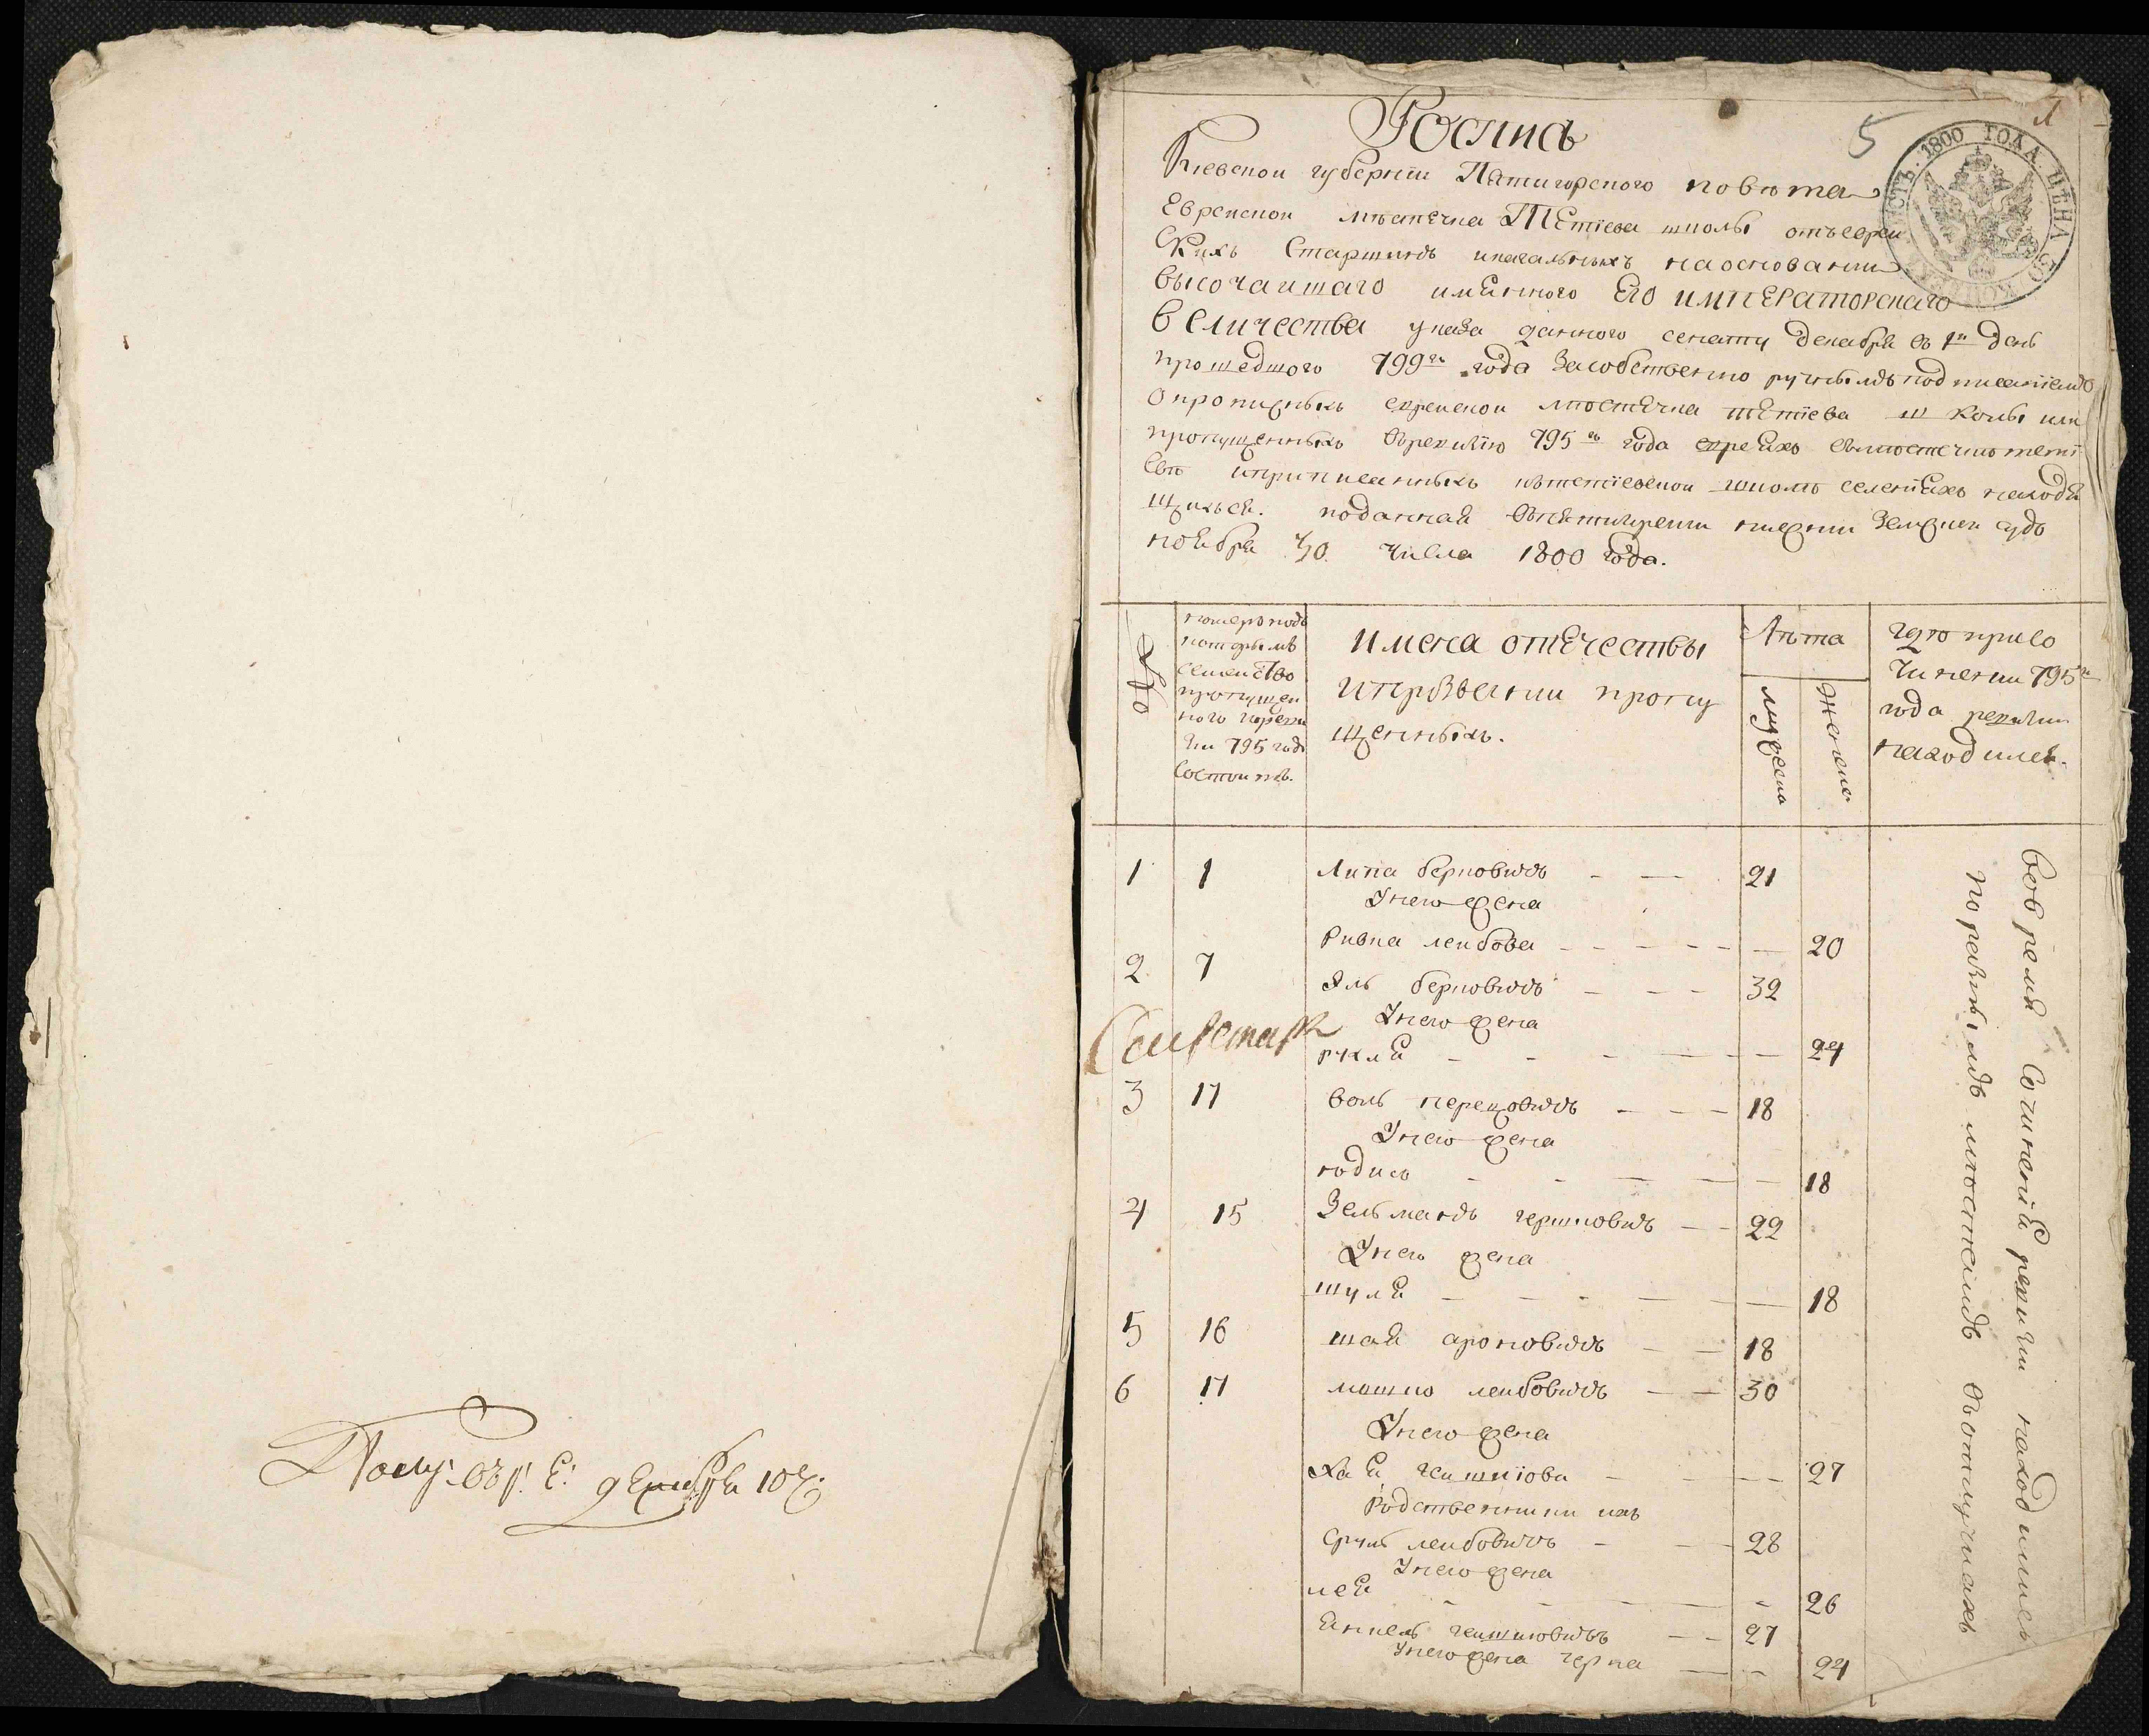 Получ: 1801: Г: декабря 10 ч:
5
1
1800 ГОДА ЦѢНА 30 КОП
Роспись
Киевской губернїи Пятигорского повѣта
Еврейской мѣстечка Тетїева школы отъ еврей
скихъ старшинъ икагальныхъ на основанїи
высочайшаго имянного Его императорскаго
величества указа данного сенату декабря въ 1й день
прошедшого 799го года засобственно ручнымъ подписанїемъ
опрописныхъ еврейской мѣстечка тетїева школы или
пропущенныхъ въревизїю 795го года евреяхъ въмѣстечкѣ тетї
евѣ иприписанныхъ кътетїевской школѣ селенїяхъ находя
щихся. поданная въпятигорскїй нижнїй земскїй судъ
ноября 30 числа 1800 года.
№
номеръ подъ
которымъ
семейство
пропущен
ного поревиз
їи 795 года
состоитъ.
имена отечествы
ипрозванїи пропу
щенныхъ.
Лѣта
мужеска
женска
гдѣ присо
чиненїи 795го
года ревизїи
находился.
1 1 Липа берковичъ 21
Унего жена
Ривка лейбова 20
2 7 Эль берковичъ 32
Унего жена
рухля 24
3 11 воль перецовичъ 18
Унего жена
кодись 18
4 15 Зельманъ гершковичъ 22
Унего жена
шуля 18
5 16 шая ароновичъ 18
6 17 мошко лейбовичъ 30
Унего жена
Хая 27
Родственники ихъ
Сруль лейбовичъ 28
Унего жена
лея 26
янкель 27
Унего жена черна 24
вовремя сочиненїя ревизїи находились
поразнымъ мѣстамъ въотлучкахъ